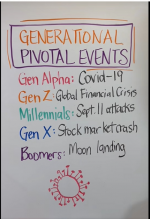 GENERATIONAL
PIVOTAL EVENTS
Gen Alpha: Covid-19
Gen Z: Global Financial Crisis
Millennials: Sept. 11 attacks
Gen X: Stock market crash
Boomers: Moon landing